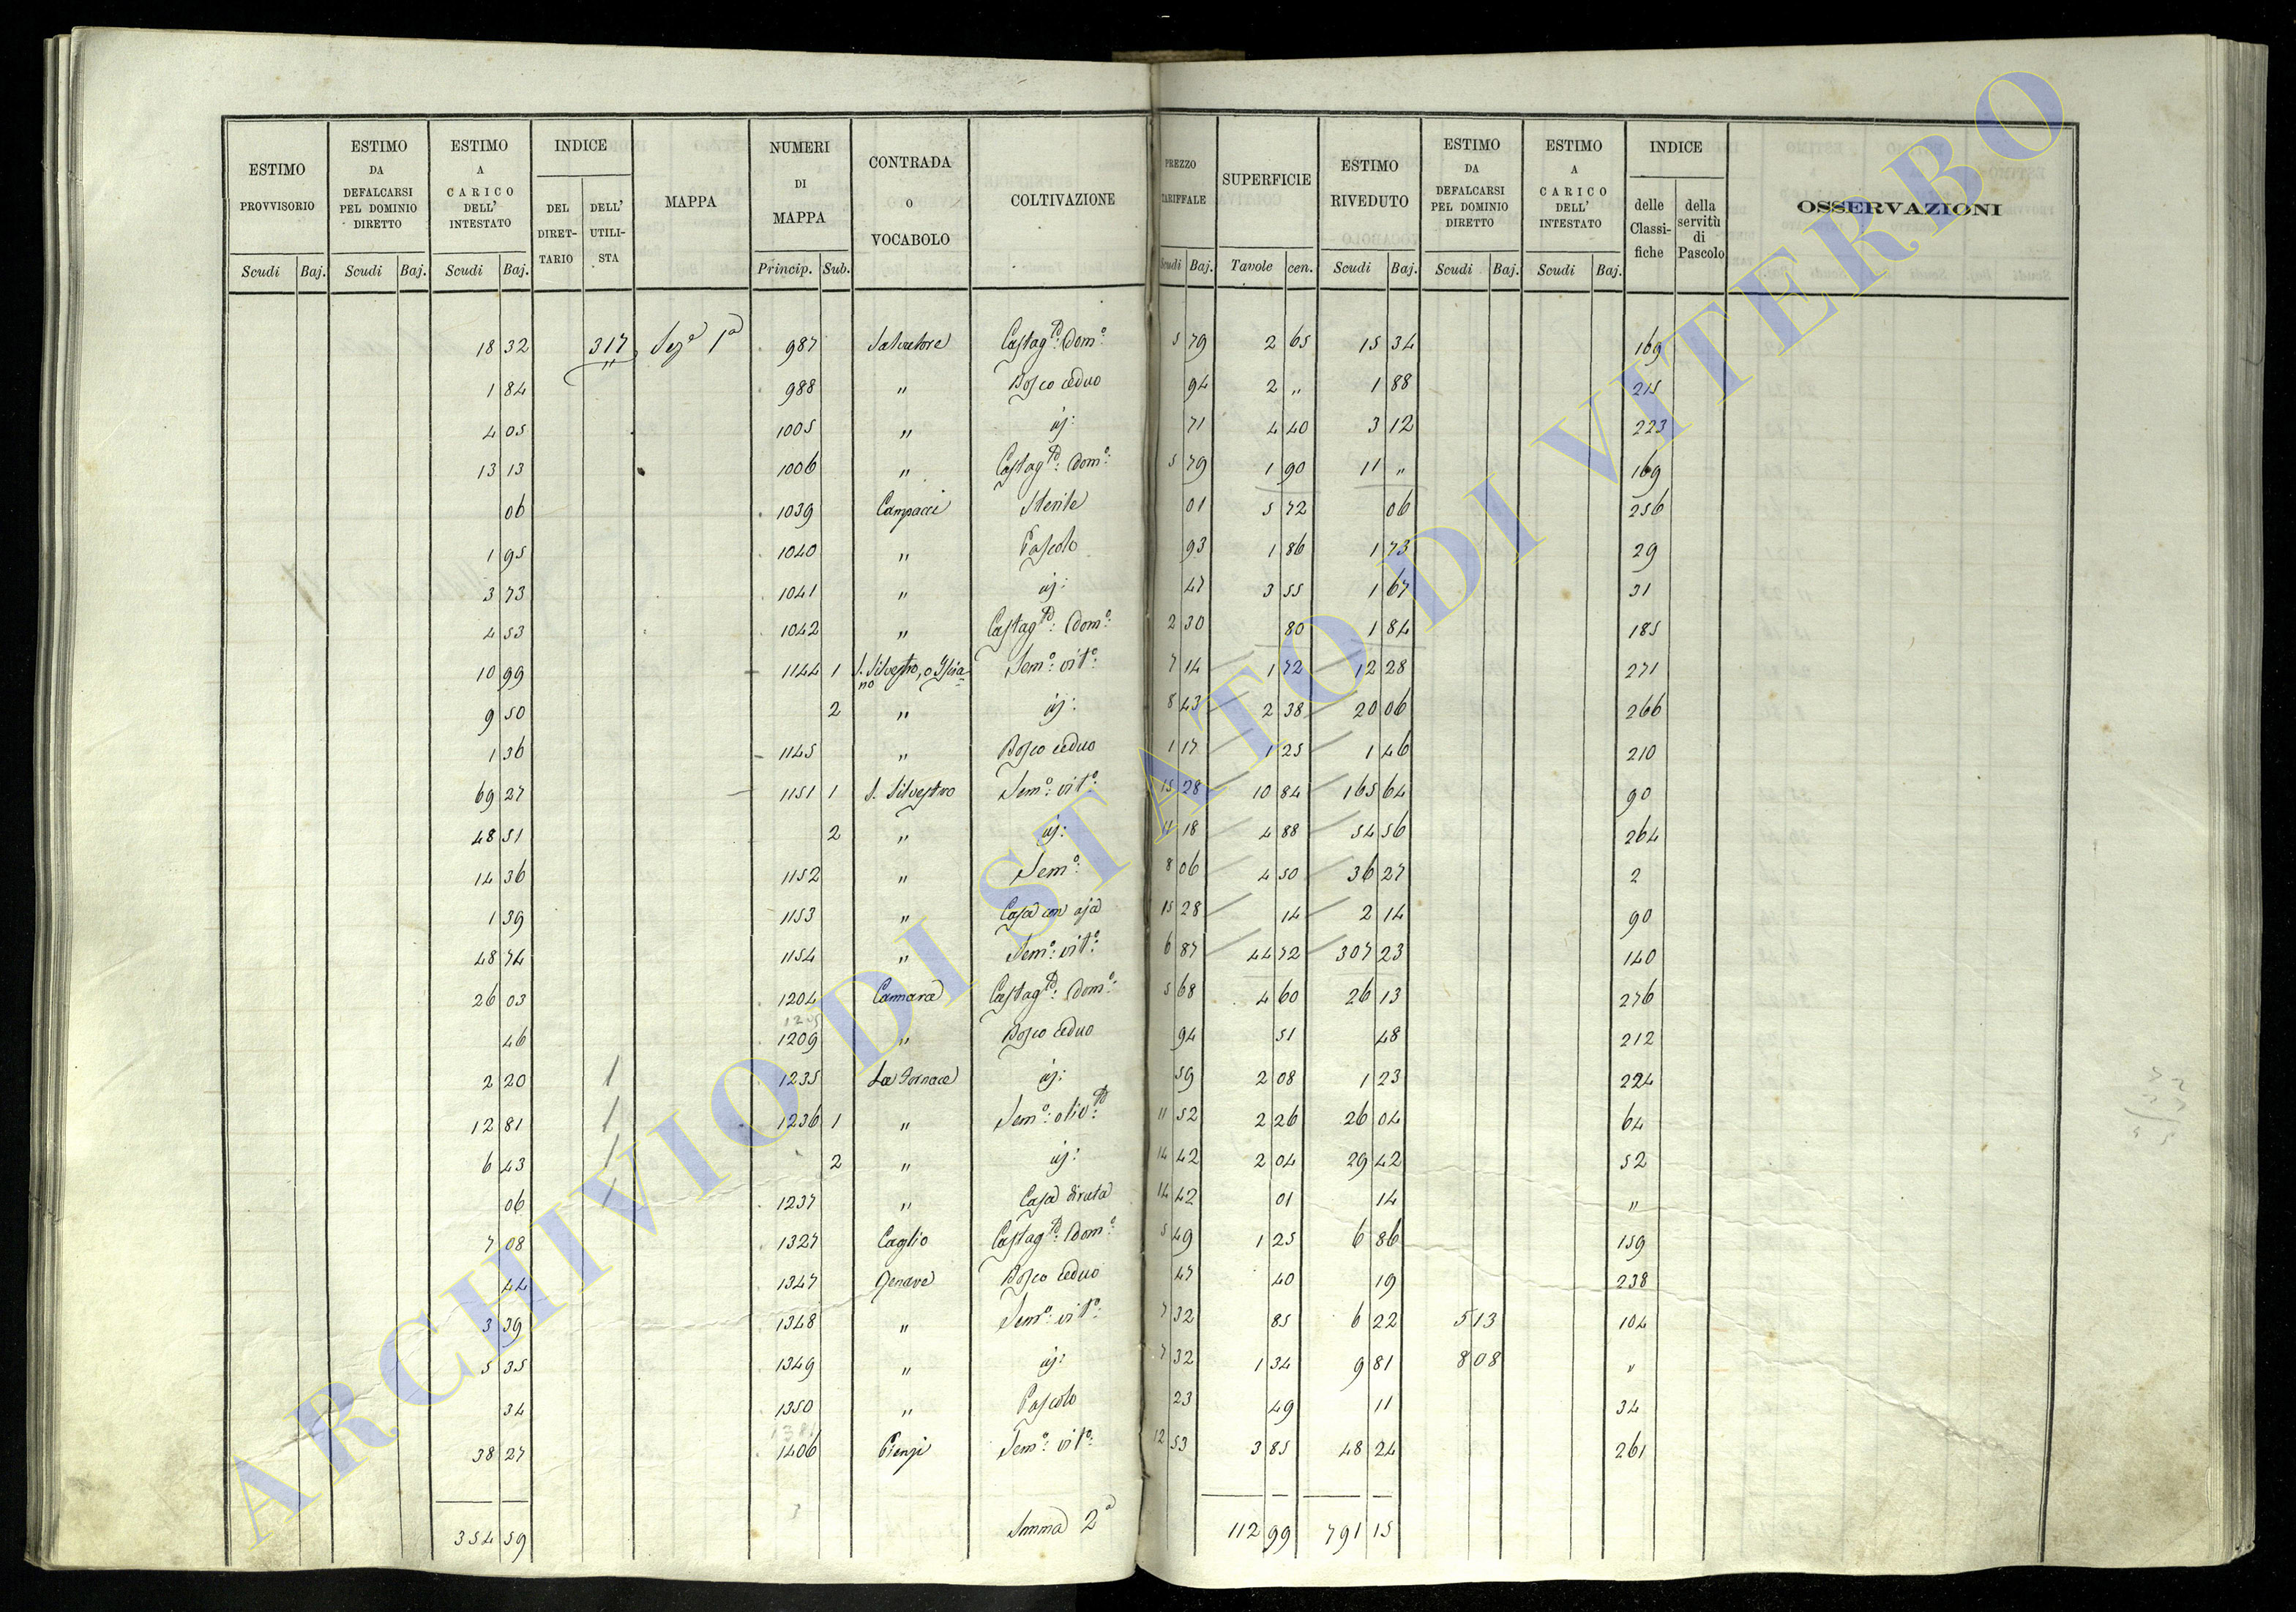 ESTIMO PROVVISORIO Scudi Baj. | ESTIMO DA DEFALCARSI PEL DOMINIO DIRETTO Scudi Baj. | ESTIMO A CARICO DELL' INTESTATO Scudi Baj. | INDICE DEL DIRET-TARIO | DELL' UTILI-STA | MAPPA | NUMERI DI MAPPA Princip. Sub. | CONTRADA O VOCABOLO | COLTIVAZIONE | PREZZO TARIFFALE Scudi Baj. | SUPERFICIE Tavole cen. | ESTIMO RIVEDUTO Scudi Baj. | ESTIMO DA DEFALCARSI PEL DOMINIO DIRETTO Scudi Baj. | ESTIMO A CARICO DELL' INTESTATO Scudi Baj. | INDICE delle Classi-fiche | della servitù di Pascolo | OSSERVAZIONI
18 32 317 Seza 1a 987 Salvatore Castagto: Domo: 5 79 2 65 15 34 169
1 84 988 " Bosco ceduo 94 2 " 1 88 215
4 05 1005 " id: 71 4 40 3 12 223
13 13 1006 " Castagto: Domo: 5 79 1 90 11 " 169
06 1039 Campacci Sterile 01 5 72 06 256
1 95 1040 " Pascolo 93 1 86 1 73 29
3 73 1041 " id: 47 3 55 1 67 31
4 53 1042 " Castagto: Domo: 2 30 80 1 84 185
10 99 1144 1 S. Silvestro, o Semo: vito: 7 14 1 72 12 28 271
9 50 2 " id: 8 43 2 38 20 06 266
1 36 1145 " Bosco ceduo 1 17 1 25 1 46 210
69 27 1151 1 S. Silvestro Semo: vito: 15 28 10 84 165 64 90
48 51 2 " id: 11 18 4 88 54 56 264
14 36 1152 " Semo: 8 06 4 50 36 27 2
1 39 1153 " Casa con aja 15 28 14 2 14 90
48 74 1154 " Semo: vito: 6 87 44 72 307 23 140
26 03 1204 Camara Castagto: Domo: 5 68 4 60 26 13 276
46 1209 " Bosco ceduo 94 51 48 212
2 20 1235 La Fornace id: 59 2 08 1 23 224
12 81 1236 1 " Semo: olivto: 11 52 2 26 26 04 64
6 43 2 " id: 14 42 2 04 29 42 52
06 1237 " Casa diruta 14 42 01 14 "
7 08 1327 Caglio Castagto: Domo: 5 49 1 25 6 86 159
44 1347 Genave Bosco ceduo 47 40 19 238
3 39 1348 " Semo: vito: 7 32 85 6 22 5 13 104
5 35 1349 " id: 7 32 1 34 9 81 8 08 "
34 1350 " Pascolo 23 49 11 34
38 27 1406 Pienzi Semo: vito: 12 53 3 85 48 24 261
354 59 Somma 2a 112 99 791 15
ARCHIVIO DI STATO DI VITERBO